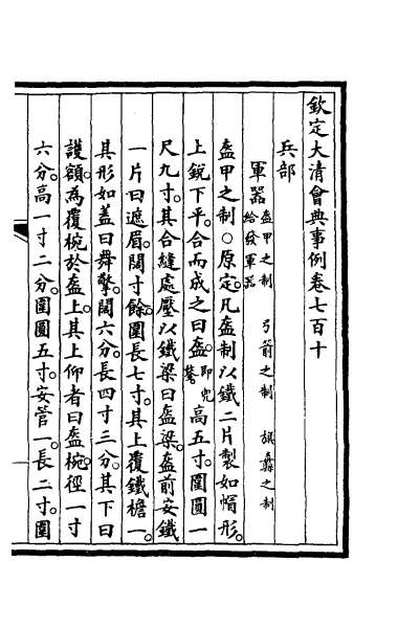 欽定大清會典事例卷七百十
兵部
軍器 盔甲之制 弓箭之制 旗纛之制 給發軍器
盔甲之制○原定。凡盔制以鐵二片製如帽形。
上銳下平。合而成之曰盔。即兜鍪高五寸。圍圓一
尺九寸。其合縫處壓以鐵梁曰盔梁。盔前安鐵
一片曰遮眉。闊寸餘。圍長七寸。其上覆鐵檐一。
其形如蓋曰舞擎。闊六分。長四寸三分。其下曰
護額。為覆椀於盔上。其上仰者曰盔椀。徑一寸
六分。高一寸二分。圍圓五寸。安管一。長二寸。圍